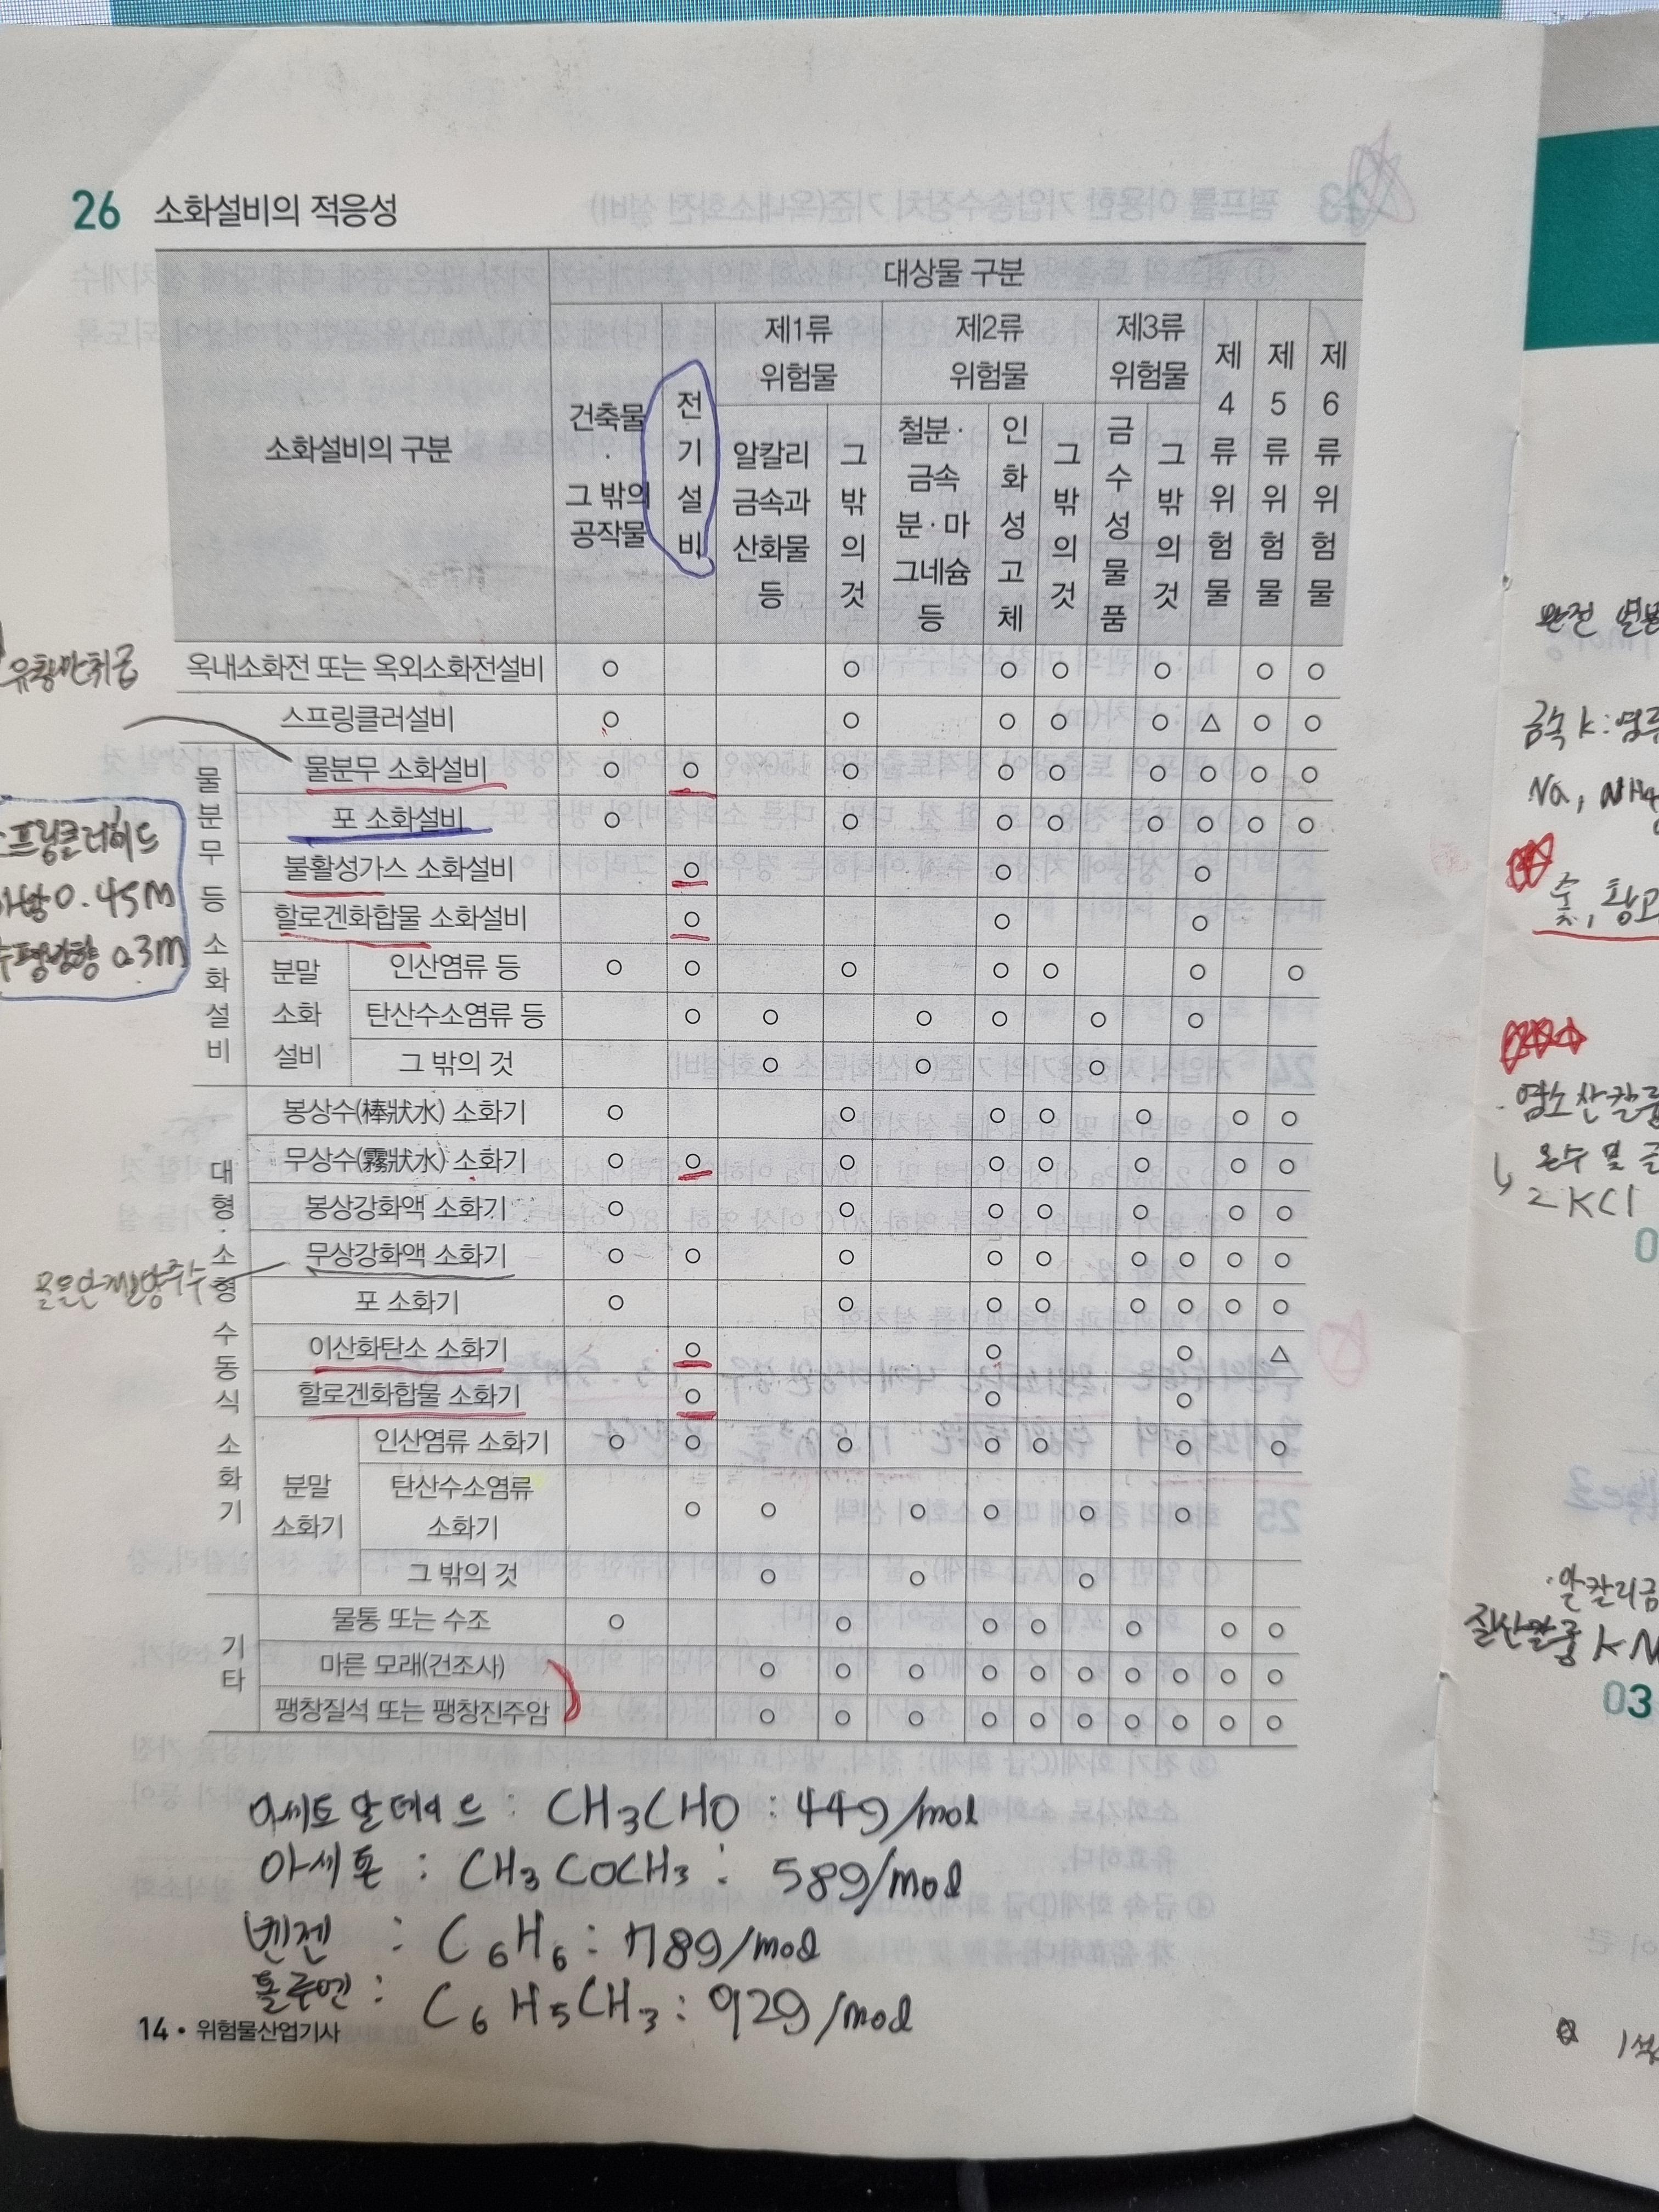 26 소화설비의 적응성
소화설비의 구분
대상물 구분
건축물
·
그 밖의
공작물
전
기
설
비
제1류
위험물
알칼리
금속과
산화물
등
그
밖
의
것
제2류
위험물
철분·
금속
분·마
그네슘
등
인
화
성
고
체
그
밖
의
것
제3류
위험물
금
수
성
물
품
그
밖
의
것
제
4
류
위
험
물
제
5
류
위
험
물
제
6
류
위
험
물
옥내소화전 또는 옥외소화전설비 ○ ○ ○ ○ ○ ○ ○
스프링클러설비 ○ ○ ○ ○ ○ △ ○ ○
물분무등소화설비
물분무 소화설비 ○ ○ ○ ○ ○ ○ ○ ○ ○
포 소화설비 ○ ○ ○ ○ ○ ○ ○ ○
불활성가스 소화설비 ○ ○ ○
할로겐화합물 소화설비 ○ ○ ○
분말
소화
설비
인산염류 등 ○ ○ ○ ○ ○ ○ ○
탄산수소염류 등 ○ ○ ○ ○ ○ ○
그 밖의 것 ○ ○ ○
대형·소형수동식소화기
봉상수(棒狀水) 소화기 ○ ○ ○ ○ ○ ○ ○
무상수(霧狀水) 소화기 ○ ○ ○ ○ ○ ○ ○ ○
봉상강화액 소화기 ○ ○ ○ ○ ○ ○ ○
무상강화액 소화기 ○ ○ ○ ○ ○ ○ ○ ○ ○
포 소화기 ○ ○ ○ ○ ○ ○ ○ ○
이산화탄소 소화기 ○ ○ ○ △
할로겐화합물 소화기 ○ ○ ○
분말
소화기
인산염류 소화기 ○ ○ ○ ○ ○ ○ ○
탄산수소염류
소화기 ○ ○ ○ ○ ○ ○
그 밖의 것 ○ ○ ○
기타
물통 또는 수조 ○ ○ ○ ○ ○ ○ ○
마른 모래(건조사) ○ ○ ○ ○ ○ ○ ○ ○ ○ ○
팽창질석 또는 팽창진주암 ○ ○ ○ ○ ○ ○ ○ ○ ○ ○
유황만취급
스프링클러헤드
0.45m
수평방향 0.3m
아세토알데히드 : CH3CHO : 44g/mol
아세톤 : CH3COCH3 : 58g/mol
벤젠 : C6H6 : 78g/mol
톨루엔 : C6H5CH3 : 92g/mol
14 • 위험물산업기사
완전
금속 K :
Na,
염소산칼륨
온수 및
2KCl
알칼리금
질산칼륨
03